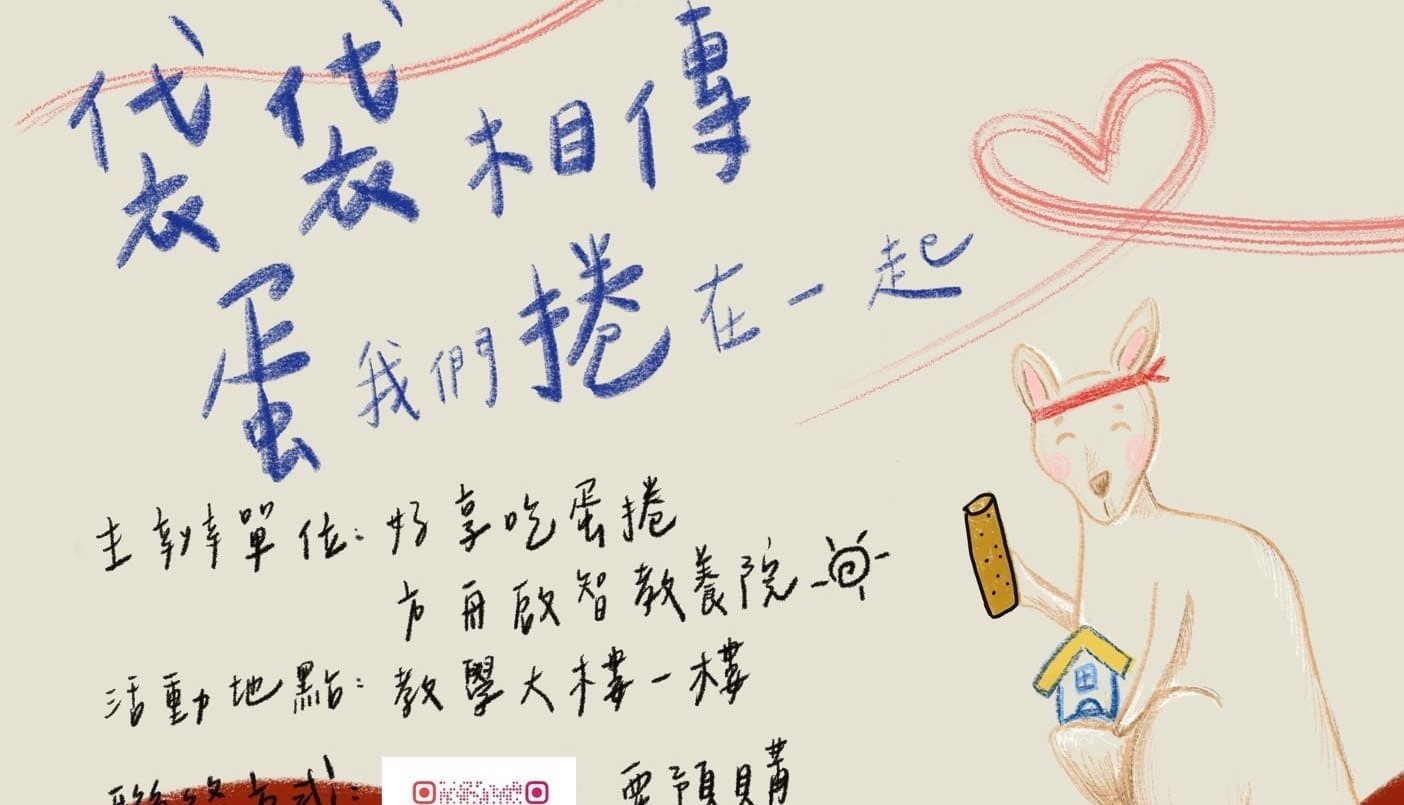 袋袋相傳
蛋我們捲在一起
主辦單位：好享吃蛋捲
方舟啟智教養院
活動地點：教學大樓一樓
聯絡方式： 要預購